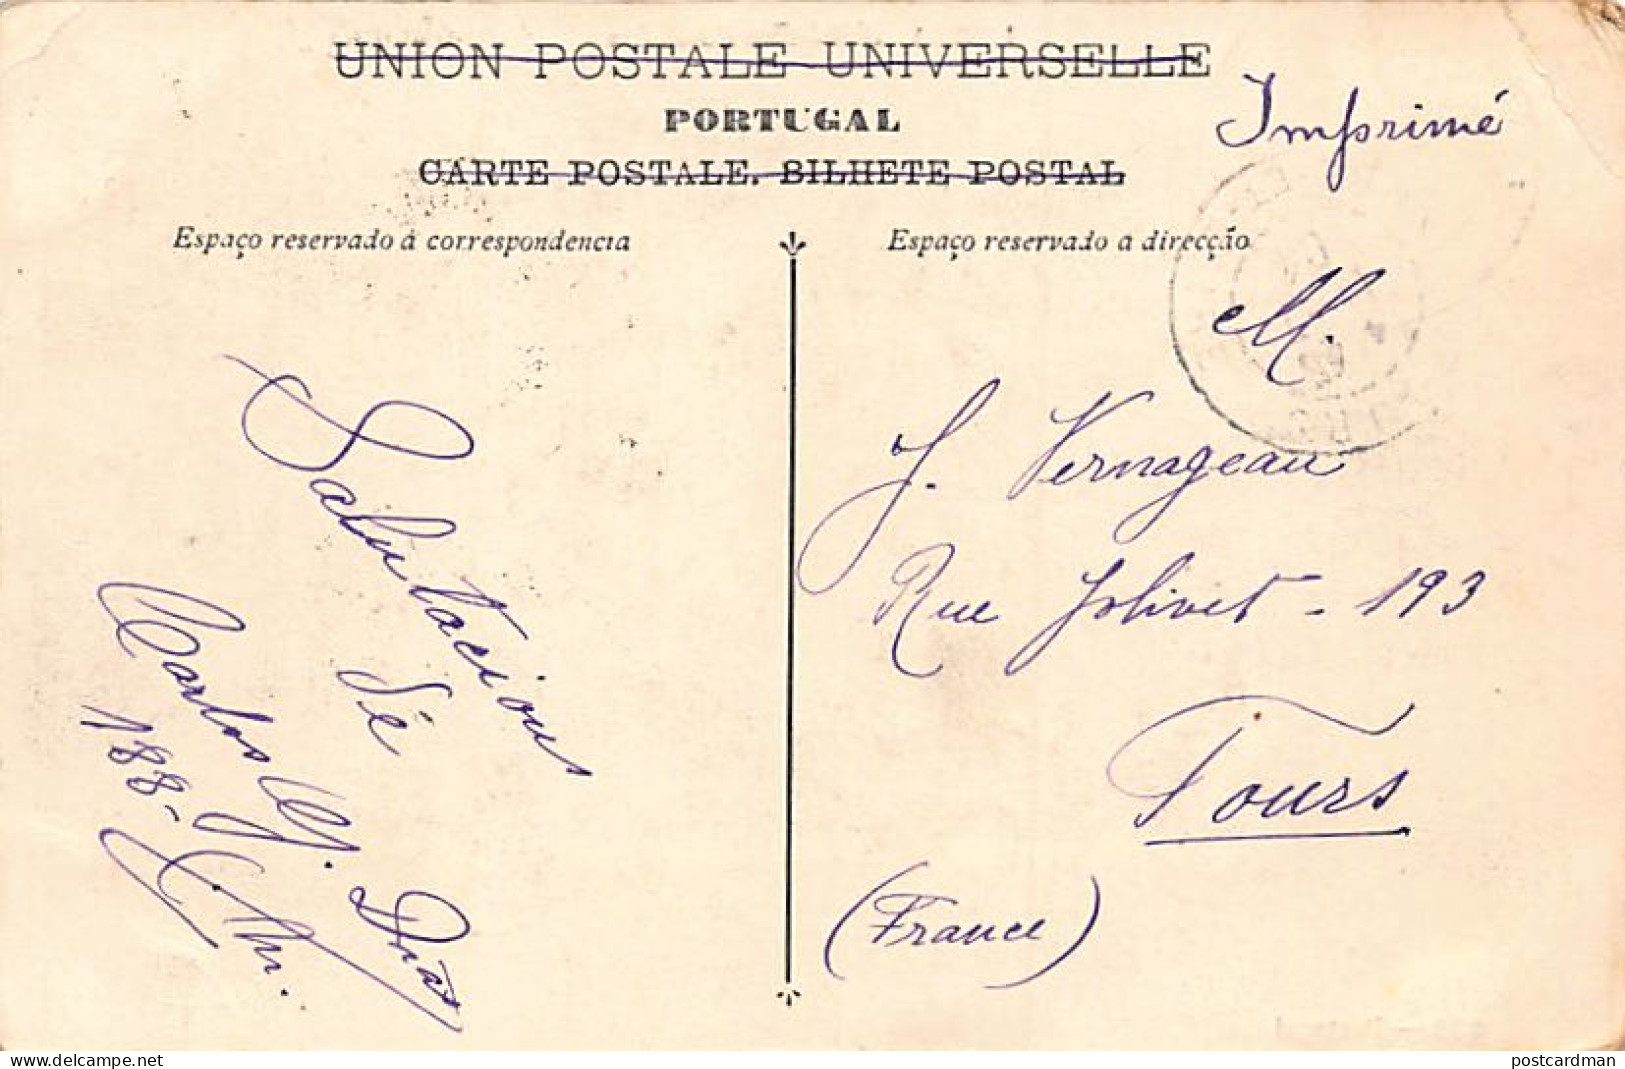 UNION POSTALE UNIVERSELLE
PORTUGAL
CARTE POSTALE. BILHETE POSTAL
Imprimé
Espaço reservado á correspondencia
Espaço reservado a direcção
M.
J. Vernageau
Rue Jolivet - 193
Tours
(France)
Salutacions
de
Carlos M. Dias
188-
www.delcampe.net
postcardman